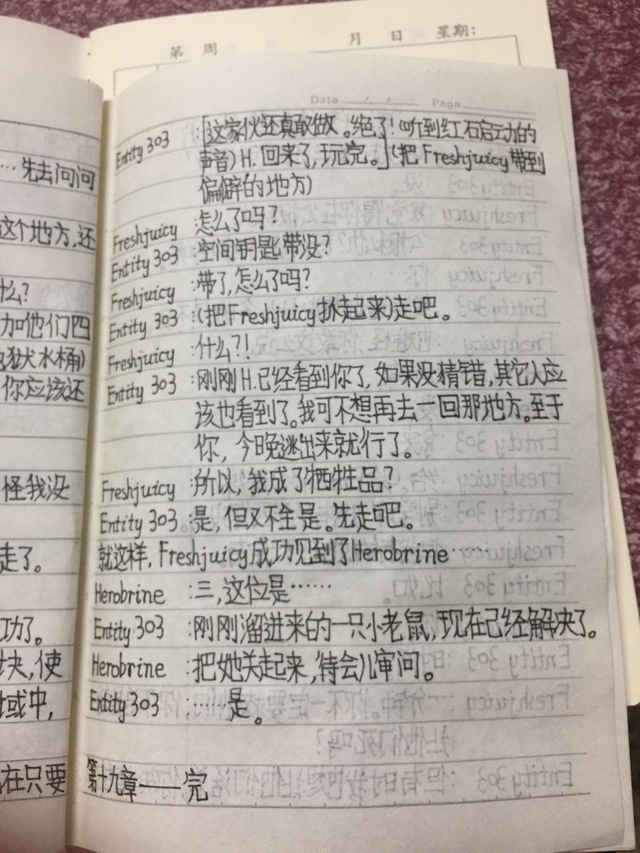 第 周 月 日 星期:
Date / / Page
…先去问问
这个地方,还
什么?
加他们四
狱水桶)
你应该还
怪我没
走了。
功了。
块,使
域中,
在只要
Entity 303 :[这家伙还真敢做。绝了!(听到红石启动的
声音)H.回来了,玩完。](把Freshjuicy带到
偏僻的地方)
Freshjuicy :怎么了吗?
Entity 303 :空间钥匙带没?
Freshjuicy :带了,怎么了吗?
Entity 303 :(把Freshjuicy扒起来)走吧。
Freshjuicy :什么?!
Entity 303 :刚刚H.已经看到你了,如果没猜错,其它人应
该也看到了。我可不想再去一回那地方。至于
你,今晚逃出来就行了。
Freshjuicy :所以,我成了牺牲品?
Entity 303 :是,但又不全是。先走吧。
就这样,Freshjuicy成功见到了Herobrine……
Herobrine :三,这位是……
Entity 303 :刚刚溜进来的一只小老鼠,现在已经解决了。
Herobrine :把她关起来,待会儿审问。
Entity 303 :……是。
第十九章——完